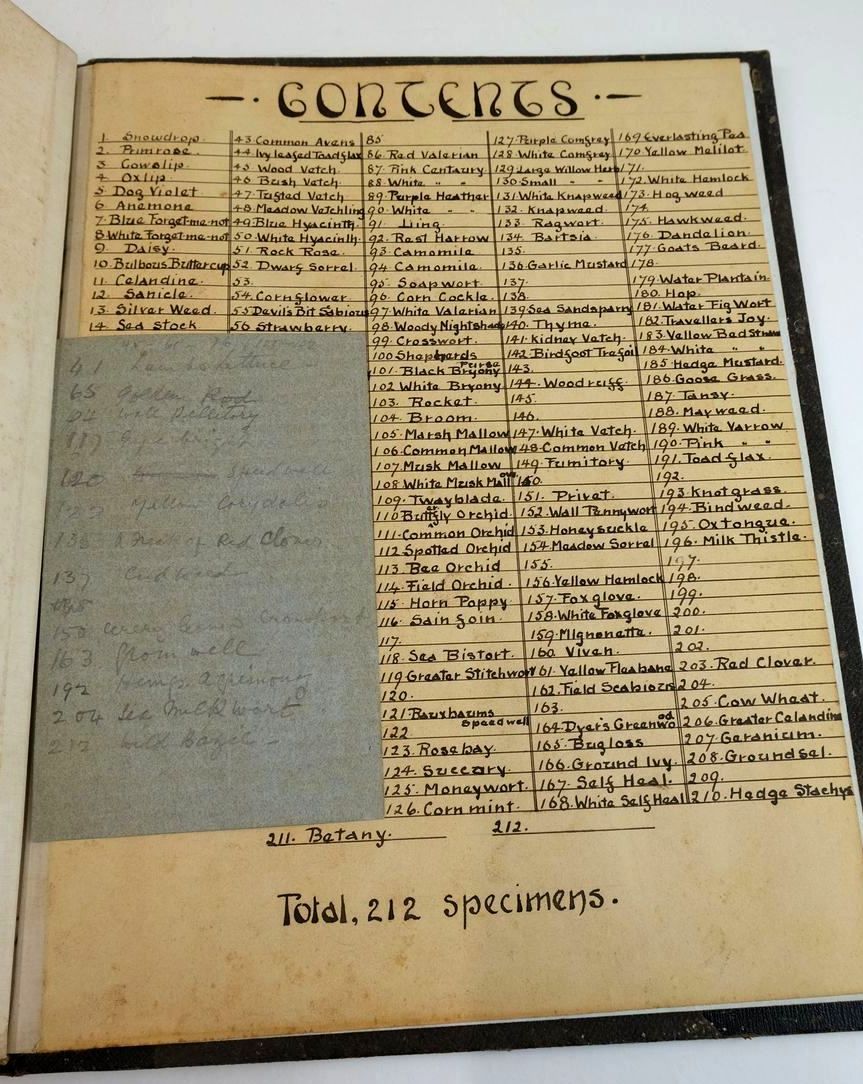 CONTENTS
1. Snowdrop.
2. Primrose.
3 Cowslip.
4 Oxlip.
5 Dog Violet
6 Anemone
7. Blue Forget-me-not
8. White Forget-me-not
9. Daisy.
10. Bulbous Buttercup
11. Celandine.
12. Sanicle.
13. Silver Weed.
14. Sea Stock
43 Common Avens
44 Ivy leafed Toadflax
45 Wood Vetch.
46 Bush Vetch.
47 Tufted Vetch
48 Meadow Vetchling
49 Blue Hyacinth.
50 White Hyacinth.
51. Rock Rose.
52. Dwarf Sorrel.
53.
54. Cornflower.
55 Devil's Bit Sabious
56 Strawberry.
85
86. Red Valerian
87. Pink Centaury
88. White " "
89. Purple Heather
90. White " "
91. Ling.
92. Rest Harrow
93. Camomile
94. Camomile.
95. Soapwort
96. Corn Cockle.
97. White Valerian
98. Woody Nightshade
99. Crosswort.
100 Shepherds Purse
101. Black Bryony
102 White Bryony
103. Rocket.
104. Broom.
105. Marsh Mallow
106. Common Mallow
107. Musk Mallow
108. White Musk Mallow
109. Twayblade.
110 Buttfly Orchid.
111. Common Orchid
112 Spotted Orchid
113. Bee Orchid
114. Field Orchid.
115. Horn Poppy
116. Sain foin.
117.
118. Sea Bistort.
119 Greater Stitchwort
120.
121 Bauxbaums Speedwell
122
123. Rosebay.
124. Succory.
125. Moneywort.
126. Corn mint.
127. Purple Comfrey
128. White Comfrey
129 Large Willow Herb
130 Small " "
131. White Knapweed
132. Knapweed.
133. Ragwort.
134. Bartsia.
135.
136. Garlic Mustard
137.
138.
139 Sea Sandspary
140. Thyme.
141. Kidney Vetch.
142. Birdfoot Trefoil
143.
144. Woodruff.
145.
146.
147. White Vetch.
48. Common Vetch
149. Fumitory.
150.
151. Privet.
152. Wall Pennywort
153. Honeysuckle
154. Meadow Sorrel
155.
156. Yellow Hemlock
157. Foxglove.
158. White Foxglove
159. Mignonette.
160. Viven.
161. Yellow Fleabane
162. Field Scabious
163.
164. Dyer's Greenwood
165. Bugloss
166. Ground Ivy.
167. Self Heal.
168. White Self Heal
169 Everlasting Pea
170 Yellow Melilot.
171.
172. White Hemlock
173. Hog weed
174.
175. Hawkweed.
176. Dandelion.
177. Goats Beard.
178.
179 Water Plantain.
180. Hop.
181. Water Fig Wort
182. Travellers Joy.
183. Yellow Bed Straw
184. White " "
185 Hedge Mustard.
186. Goose Grass.
187. Tansy.
188. Mayweed.
189. White Yarrow
190. Pink " "
191. Toad flax.
192.
193. Knotgrass.
194. Bindweed.
195. Oxtongue.
196. Milk Thistle.
197.
198.
199.
200.
201.
202.
203. Red Clover.
204.
205. Cow Wheat.
206. Greater Celandine
207. Geranium.
208. Groundsel.
209.
210. Hedge Stachys
41
65 Golden Rod
Wall Pellitory
120 Speedwell
Yellow Corydalis
A Freak of Red Clover
137 Cudweed
150
163
192 Hemp Agrimony
204 Sea Milkwort
212 Wild Basil
211. Betany.
212.
Total, 212 specimens.